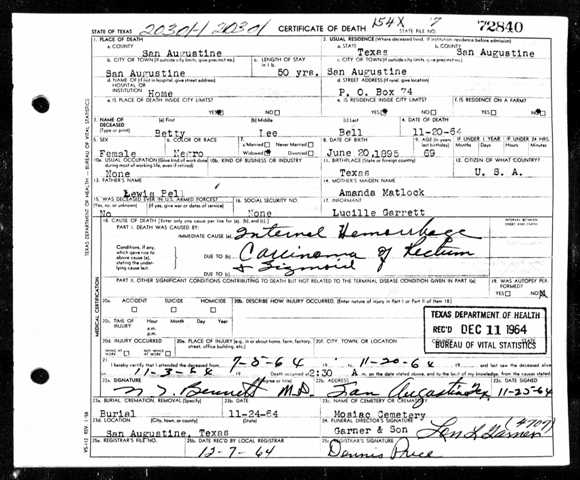 20301 20301 CERTIFICATE OF DEATH 154X 7 72840
STATE OF TEXAS STATE FILE NO.
1. PLACE OF DEATH 2. USUAL RESIDENCE (Where deceased lived. If institution: residence before admission)
a. COUNTY a. STATE b. COUNTY
San Augustine Texas San Augustine
b. CITY OR TOWN (If outside city limits, give precinct no.) c. LENGTH OF STAY in 1 b. c. CITY OR TOWN (If outside city limits, give precinct no.)
San Augustine 50 yrs. San Augustine
d. NAME OF (If not in hospital, give street address) HOSPITAL OR INSTITUTION d. STREET ADDRESS (If rural, give location)
Home P. O. Box 74
e. IS PLACE OF DEATH INSIDE CITY LIMITS? e. IS RESIDENCE INSIDE CITY LIMITS? f. IS RESIDENCE ON A FARM?
YES NO YES NO YES NO
3. NAME OF DECEASED (Type or print) (a) First (b) Middle (c) Last 4. DATE OF DEATH
Betty Lee Bell 11-20-64
5. SEX 6. COLOR OR RACE 7. Married Never Married Widowed Divorced 8. DATE OF BIRTH 9. AGE IF UNDER 1 YEAR IF UNDER 24 HRS.
Female Negro June 20, 1895 69
10a. USUAL OCCUPATION (Give kind of work done 10b. KIND OF BUSINESS OR INDUSTRY 11. BIRTHPLACE (State or foreign country) 12. CITIZEN OF WHAT COUNTRY?
None Texas U. S. A.
13. FATHER'S NAME 14. MOTHER'S MAIDEN NAME
Lewis Amanda Matlock
15. WAS DECEASED EVER IN U.S. ARMED FORCES? 16. SOCIAL SECURITY NO. 17. INFORMANT
(Yes, no, or unknown) (If yes, give war or dates of service)
No None Lucille Garrett
18. CAUSE OF DEATH [Enter only one cause per line for (a), (b), and (c).] INTERVAL BETWEEN ONSET AND DEATH
PART I. DEATH WAS CAUSED BY:
IMMEDIATE CAUSE (a) Internal Hemorrhage
Conditions, if any, which gave rise to above cause (a), stating the underlying cause last.
DUE TO (b) Carcinoma of Rectum
DUE TO (c) & Sigmoid
PART II. OTHER SIGNIFICANT CONDITIONS CONTRIBUTING TO DEATH BUT NOT RELATED TO THE TERMINAL DISEASE CONDITION GIVEN IN PART I (a) 19. WAS AUTOPSY PERFORMED?
YES NO
20a. ACCIDENT SUICIDE HOMICIDE 20b. DESCRIBE HOW INJURY OCCURRED. (Enter nature of injury in Part I or Part II of item 18)
20c. TIME OF INJURY Hour Month Day Year
a.m.
p.m.
20d. INJURY OCCURRED WHILE AT WORK NOT WHILE AT WORK 20e. PLACE OF INJURY (e.g., in or about home, farm, factory, street, office building, etc.) 20f. CITY, TOWN, OR LOCATION COUNTY STATE
TEXAS DEPARTMENT OF HEALTH
REC'D DEC 11 1964
BUREAU OF VITAL STATISTICS
21. I hereby certify that I attended the deceased from 7-5-64 to 11-20-64
Death occurred at 2:30 A. m. on the date stated above, and to the best of my knowledge, from the causes stated.
22a. SIGNATURE 22b. ADDRESS 22c. DATE SIGNED
Bennett M.D. San Augustine Tex 11-25-64
23a. BURIAL, CREMATION, REMOVAL (Specify) 23b. DATE 23c. NAME OF CEMETERY OR CREMATORY
Burial 11-24-64 Mosiac Cemetery
23d. LOCATION 24. FUNERAL DIRECTOR'S SIGNATURE
San Augustine, Texas Garner & Son
25a. REGISTRAR'S FILE NO. 25b. DATE REC'D BY LOCAL REGISTRAR 25c. REGISTRAR'S SIGNATURE
12-7-64 Dennis Price
TEXAS DEPARTMENT OF HEALTH - BUREAU OF VITAL STATISTICS
MEDICAL CERTIFICATION